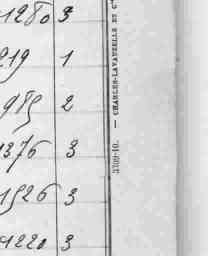 1280 3
219 1
985 2
1376 3
1526 3
1220 3
3709-10. — CHARLES-LAVAUZELLE ET C